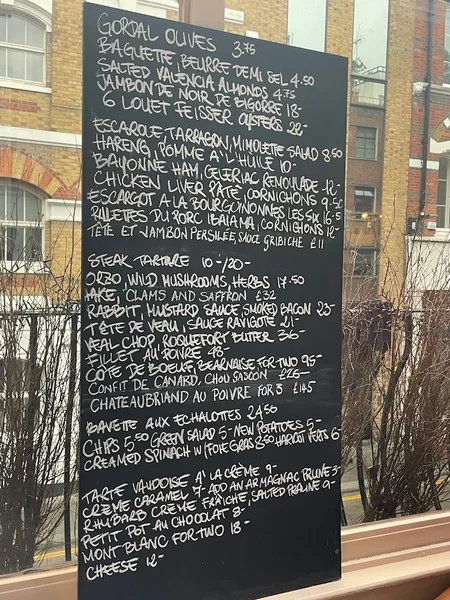 GORDAL OLIVES 3.75
BAGUETTE, BEURRE DEMI SEL 4.50
SALTED VALENCIA ALMONDS 4.75
JAMBON DE NOIR DE BIGORRE 18-
6 LOUET FEISSER OYSTERS 22-
ESCAROLE, TARRAGON, MIMOLETTE SALAD 8.50
HARENG, POMME A L'HUILE 10-
BAYONNE HAM, CELERIAC REMOULADE 12-
CHICKEN LIVER PATE, CORNICHONS 9.50
ESCARGOT A LA BOURGUINONNES LES SIX 16.5
RILLETTES DU PORC IBAIAMA, CORNICHONS 12-
TÊTE ET JAMBON PERSILÉE, SAUCE GRIBICHE £11
STEAK TARTARE 10-/20-
ORZO, WILD MUSHROOMS, HERBS 17.50
HAKE, CLAMS AND SAFFRON £32
RABBIT, MUSTARD SAUCE, SMOKED BACON 25-
TÊTE DE VEAU, SAUCE RAVIGOTE 21-
VEAL CHOP, ROQUEFORT BUTTER 36-
FILLET AU POIVRE 48-
COTE DE BOEUF, BEARNAISE FOR TWO 95-
CONFIT DE CANARD, CHOU GASCON £26-
CHATEAUBRIAND AU POIVRE FOR 3 £145
BAVETTE AUX ECHALOTTES 24.50
CHIPS 5.50 GREEN SALAD 5- NEW POTATOES 5-
CREAMED SPINACH W/ FOIE GRAS 8.50 HARICOT VERTS 6-
TARTE VAUDOISE A LA CRÈME 9-
CRÈME CARAMEL 7- ADD AN ARMAGNAC PRUNE 3-
RHUBARB CREME FRAÎCHE, SALTED PRALINE 9-
PETIT POT AU CHOCOLAT 8-
MONT BLANC FOR TWO 18-
CHEESE 12-